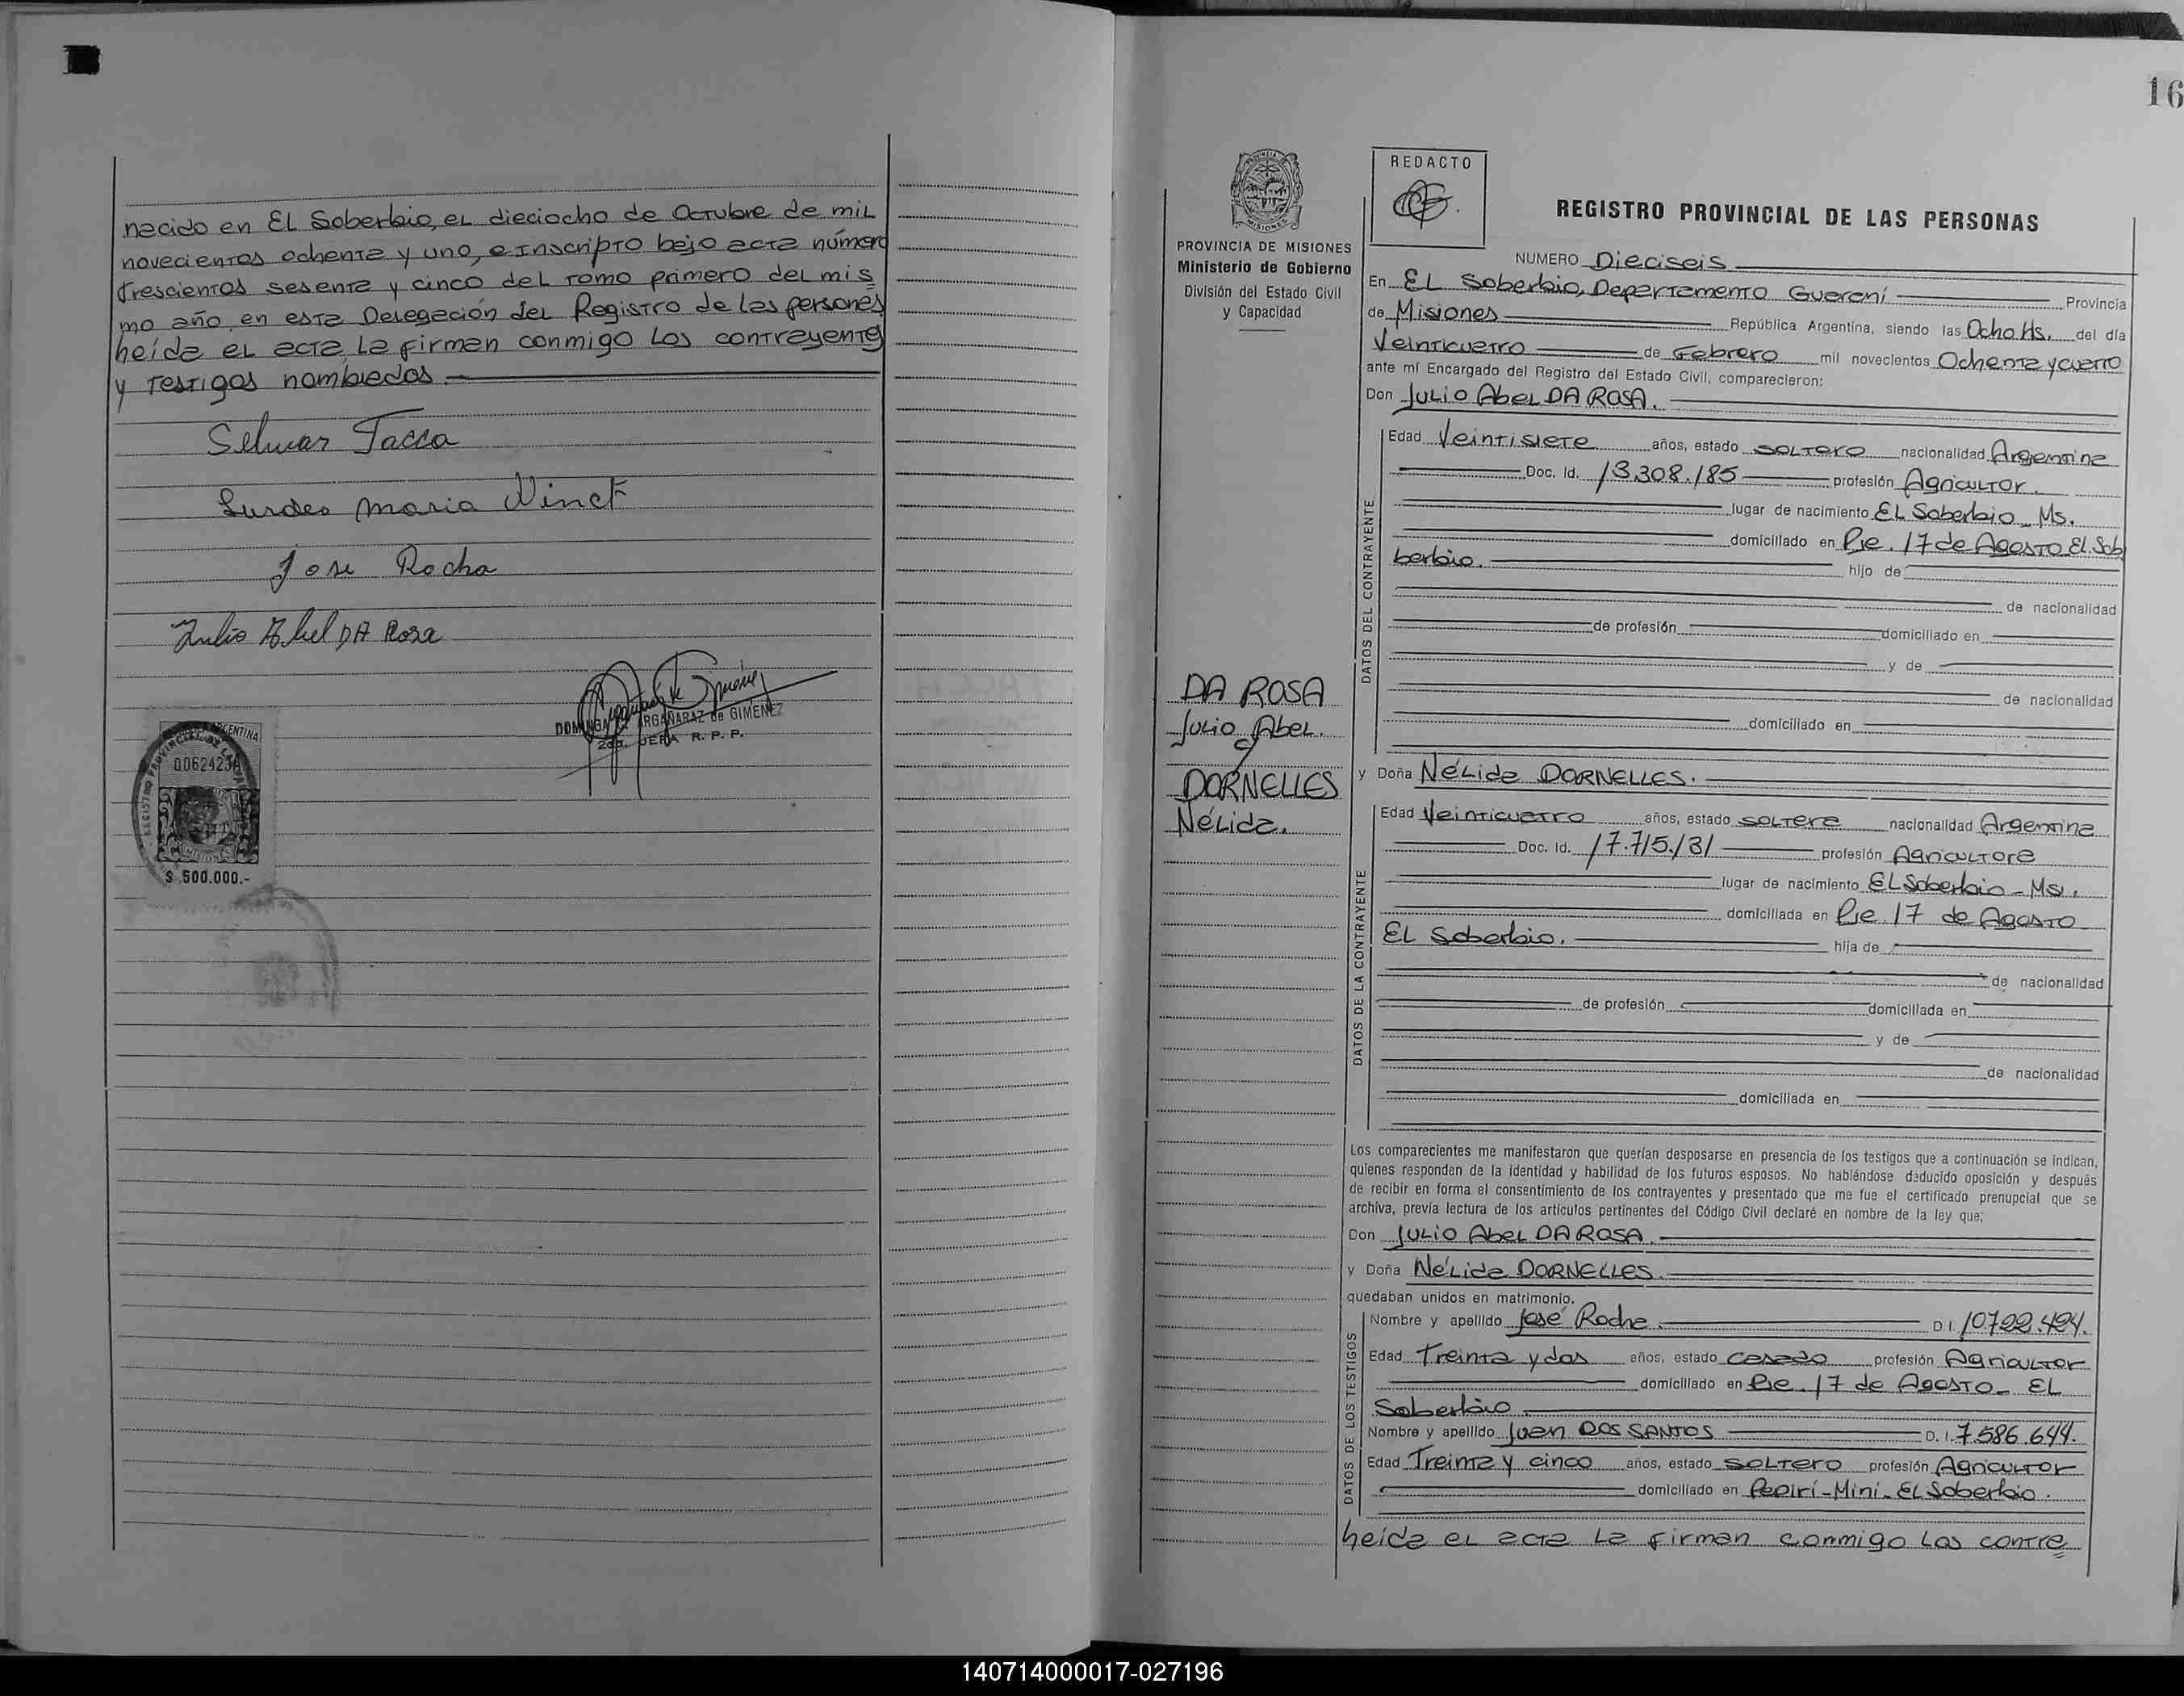 nacido en El Soberbio, el dieciocho de Octubre de mil
novecientos ochenta y uno, e Inscripto bajo acta número
trescientos sesenta y cinco del tomo primero del mis
mo año, en esta Delegación del Registro de las personas
heida el acta, la firman conmigo los contrayentes
y testigos nombrados.
Selmar Tacca
Lurdes Maria Ninct
Jose Rocha
Julio Abel DA Rosa
DOMINGA ARGAÑARAZ de GIMENEZ
2da. JEFA R. P. P.
ARGENTINA
0062423
MISIONES
$ 500.000.-
16
PROVINCIA DE MISIONES
Ministerio de Gobierno
División del Estado Civil
y Capacidad
REDACTO
REGISTRO PROVINCIAL DE LAS PERSONAS
NUMERO Dieciseis
En El Soberbio, Departamento Guaraní Provincia
de Misiones República Argentina, siendo las Ocho Hs. del día
Veinticuatro de Febrero mil novecientos Ochenta y cuatro
ante mí Encargado del Registro del Estado Civil, comparecieron:
Don Julio Abel DA ROSA.
DATOS DEL CONTRAYENTE
Edad Veintisiete años, estado soltero nacionalidad Argentina
Doc. Id. 13.308.185 profesión Agricultor.
lugar de nacimiento El Soberbio - Ms.
domiciliado en Pje. 17 de Agosto El Sob
berbio. hijo de
de nacionalidad
de profesión domiciliado en
y de
de nacionalidad
domiciliado en
DA ROSA
Julio Abel.
y
DORNELLES
Nélida.
y Doña Nélida DORNELLES.
DATOS DE LA CONTRAYENTE
Edad Veinticuatro años, estado soltera nacionalidad Argentina
Doc. Id. 17.715.131 profesión Agricultora
lugar de nacimiento El Soberbio - Ms.
domiciliada en Pje. 17 de Agosto
El Soberbio. hija de
de nacionalidad
de profesión domiciliada en
y de
de nacionalidad
domiciliada en
Los comparecientes me manifestaron que querían desposarse en presencia de los testigos que a continuación se indican,
quienes responden de la identidad y habilidad de los futuros esposos. No habiéndose deducido oposición y después
de recibir en forma el consentimiento de los contrayentes y presentado que me fue el certificado prenupcial que se
archiva, previa lectura de los artículos pertinentes del Código Civil declaré en nombre de la ley que:
Don Julio Abel DA ROSA.
y Doña Nélida DORNELLES.
quedaban unidos en matrimonio.
DATOS DE LOS TESTIGOS
Nombre y apellido José Rocha. D.I. 10.722.424.
Edad Treinta y dos años, estado casado profesión Agricultor
domiciliado en Pje. 17 de Agosto - El
Soberbio
Nombre y apellido Juan DOS SANTOS D.I. 7.586.644.
Edad Treinta y cinco años, estado soltero profesión Agricultor
domiciliado en Pepirí-Miní - El Soberbio.
heida el acta la firman conmigo los contra
140714000017-027196